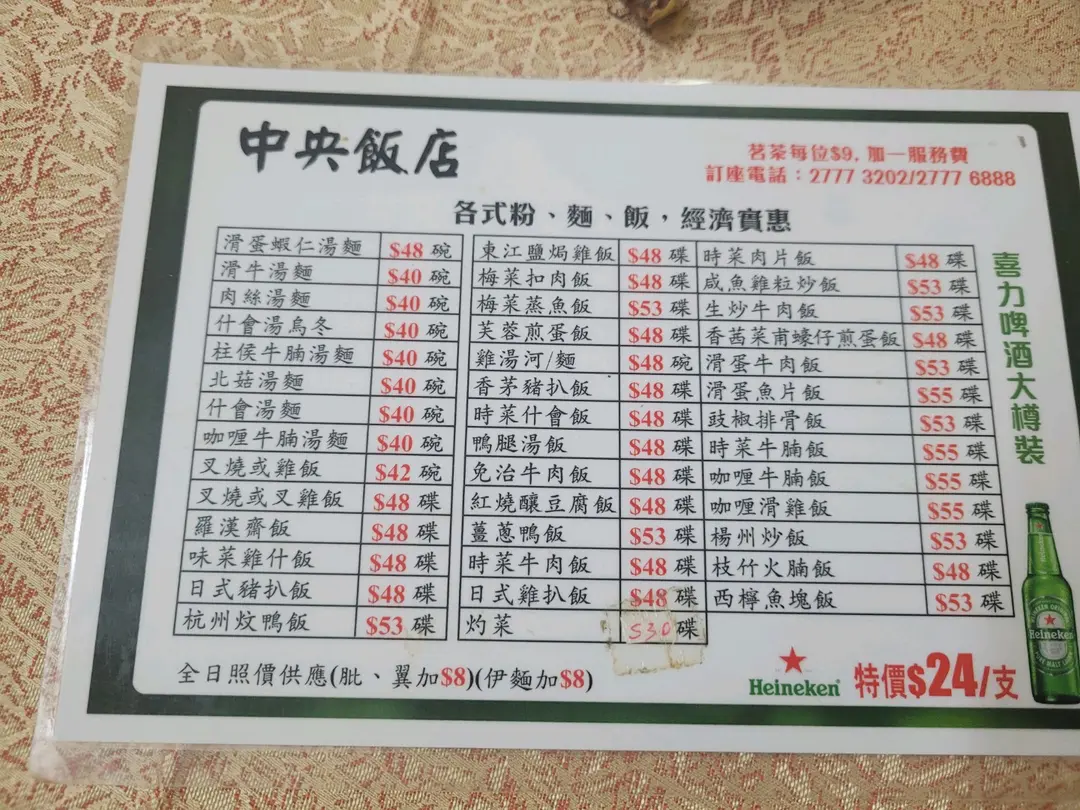 中央飯店
茗茶每位$9, 加一服務費
訂座電話：2777 3202/2777 6888
各式粉、麵、飯，經濟實惠
滑蛋蝦仁湯麵 $48 碗
滑牛湯麵 $40 碗
肉絲湯麵 $40 碗
什會湯烏冬 $40 碗
柱侯牛腩湯麵 $40 碗
北菇湯麵 $40 碗
什會湯麵 $40 碗
咖喱牛腩湯麵 $40 碗
叉燒或雞飯 $42 碗
叉燒或叉雞飯 $48 碟
羅漢齋飯 $48 碟
味菜雞什飯 $48 碟
日式豬扒飯 $48 碟
杭州炆鴨飯 $53 碟
東江鹽焗雞飯 $48 碟
梅菜扣肉飯 $48 碟
梅菜蒸魚飯 $53 碟
芙蓉煎蛋飯 $48 碟
雞湯河/麵 $48 碟
香茅豬扒飯 $48 碟
時菜什會飯 $48 碟
鴨腿湯飯 $48 碟
免治牛肉飯 $48 碟
紅燒釀豆腐飯 $48 碟
薑蔥鴨飯 $53 碟
時菜牛肉飯 $48 碟
日式雞扒飯 $48 碟
灼菜 $30 碟
時菜肉片飯 $48 碟
咸魚雞粒炒飯 $53 碟
生炒牛肉飯 $53 碟
香茜菜甫蠔仔煎蛋飯 $48 碟
滑蛋牛肉飯 $53 碟
滑蛋魚片飯 $55 碟
豉椒排骨飯 $53 碟
時菜牛腩飯 $55 碟
咖喱牛腩飯 $55 碟
咖喱滑雞飯 $55 碟
楊州炒飯 $53 碟
枝竹火腩飯 $48 碟
西檸魚塊飯 $53 碟
喜力啤酒大樽裝
全日照價供應(肶、翼加$8)(伊麵加$8)
Heineken
特價$24/支
Heineken